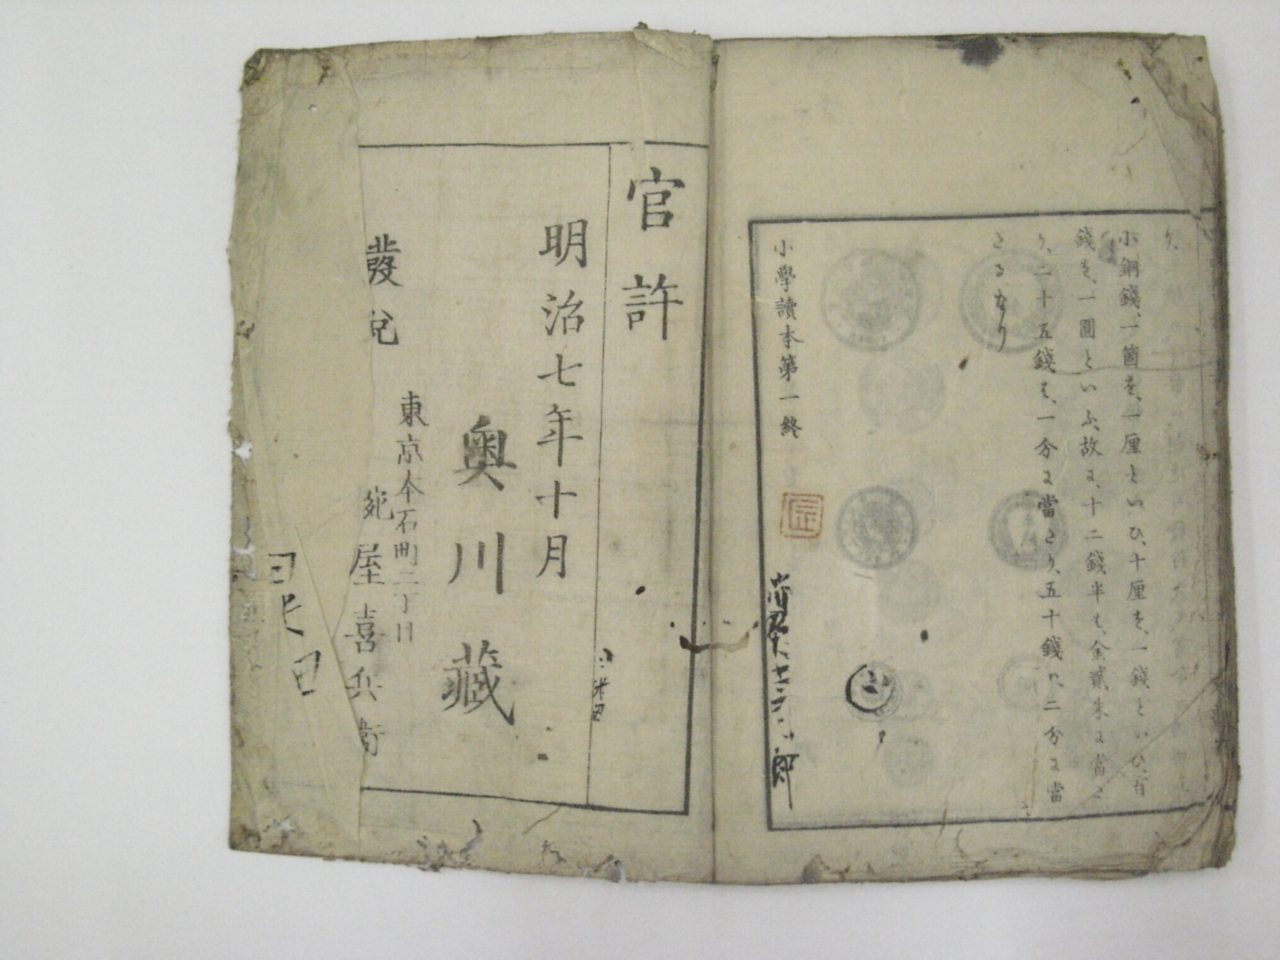 り、
小銅錢、一箇を、一厘といひ、十厘を、一錢といひ、百
錢を、一圓といふ、故に、十二錢半も、金貳朱に當と
り、二十五錢も、一分に當とり、五十錢は、二分に當
とるなり
小學讀本第一終
官許
明治七年十月
奥川藏
東京本石町二丁目
發兌
屋喜兵衛